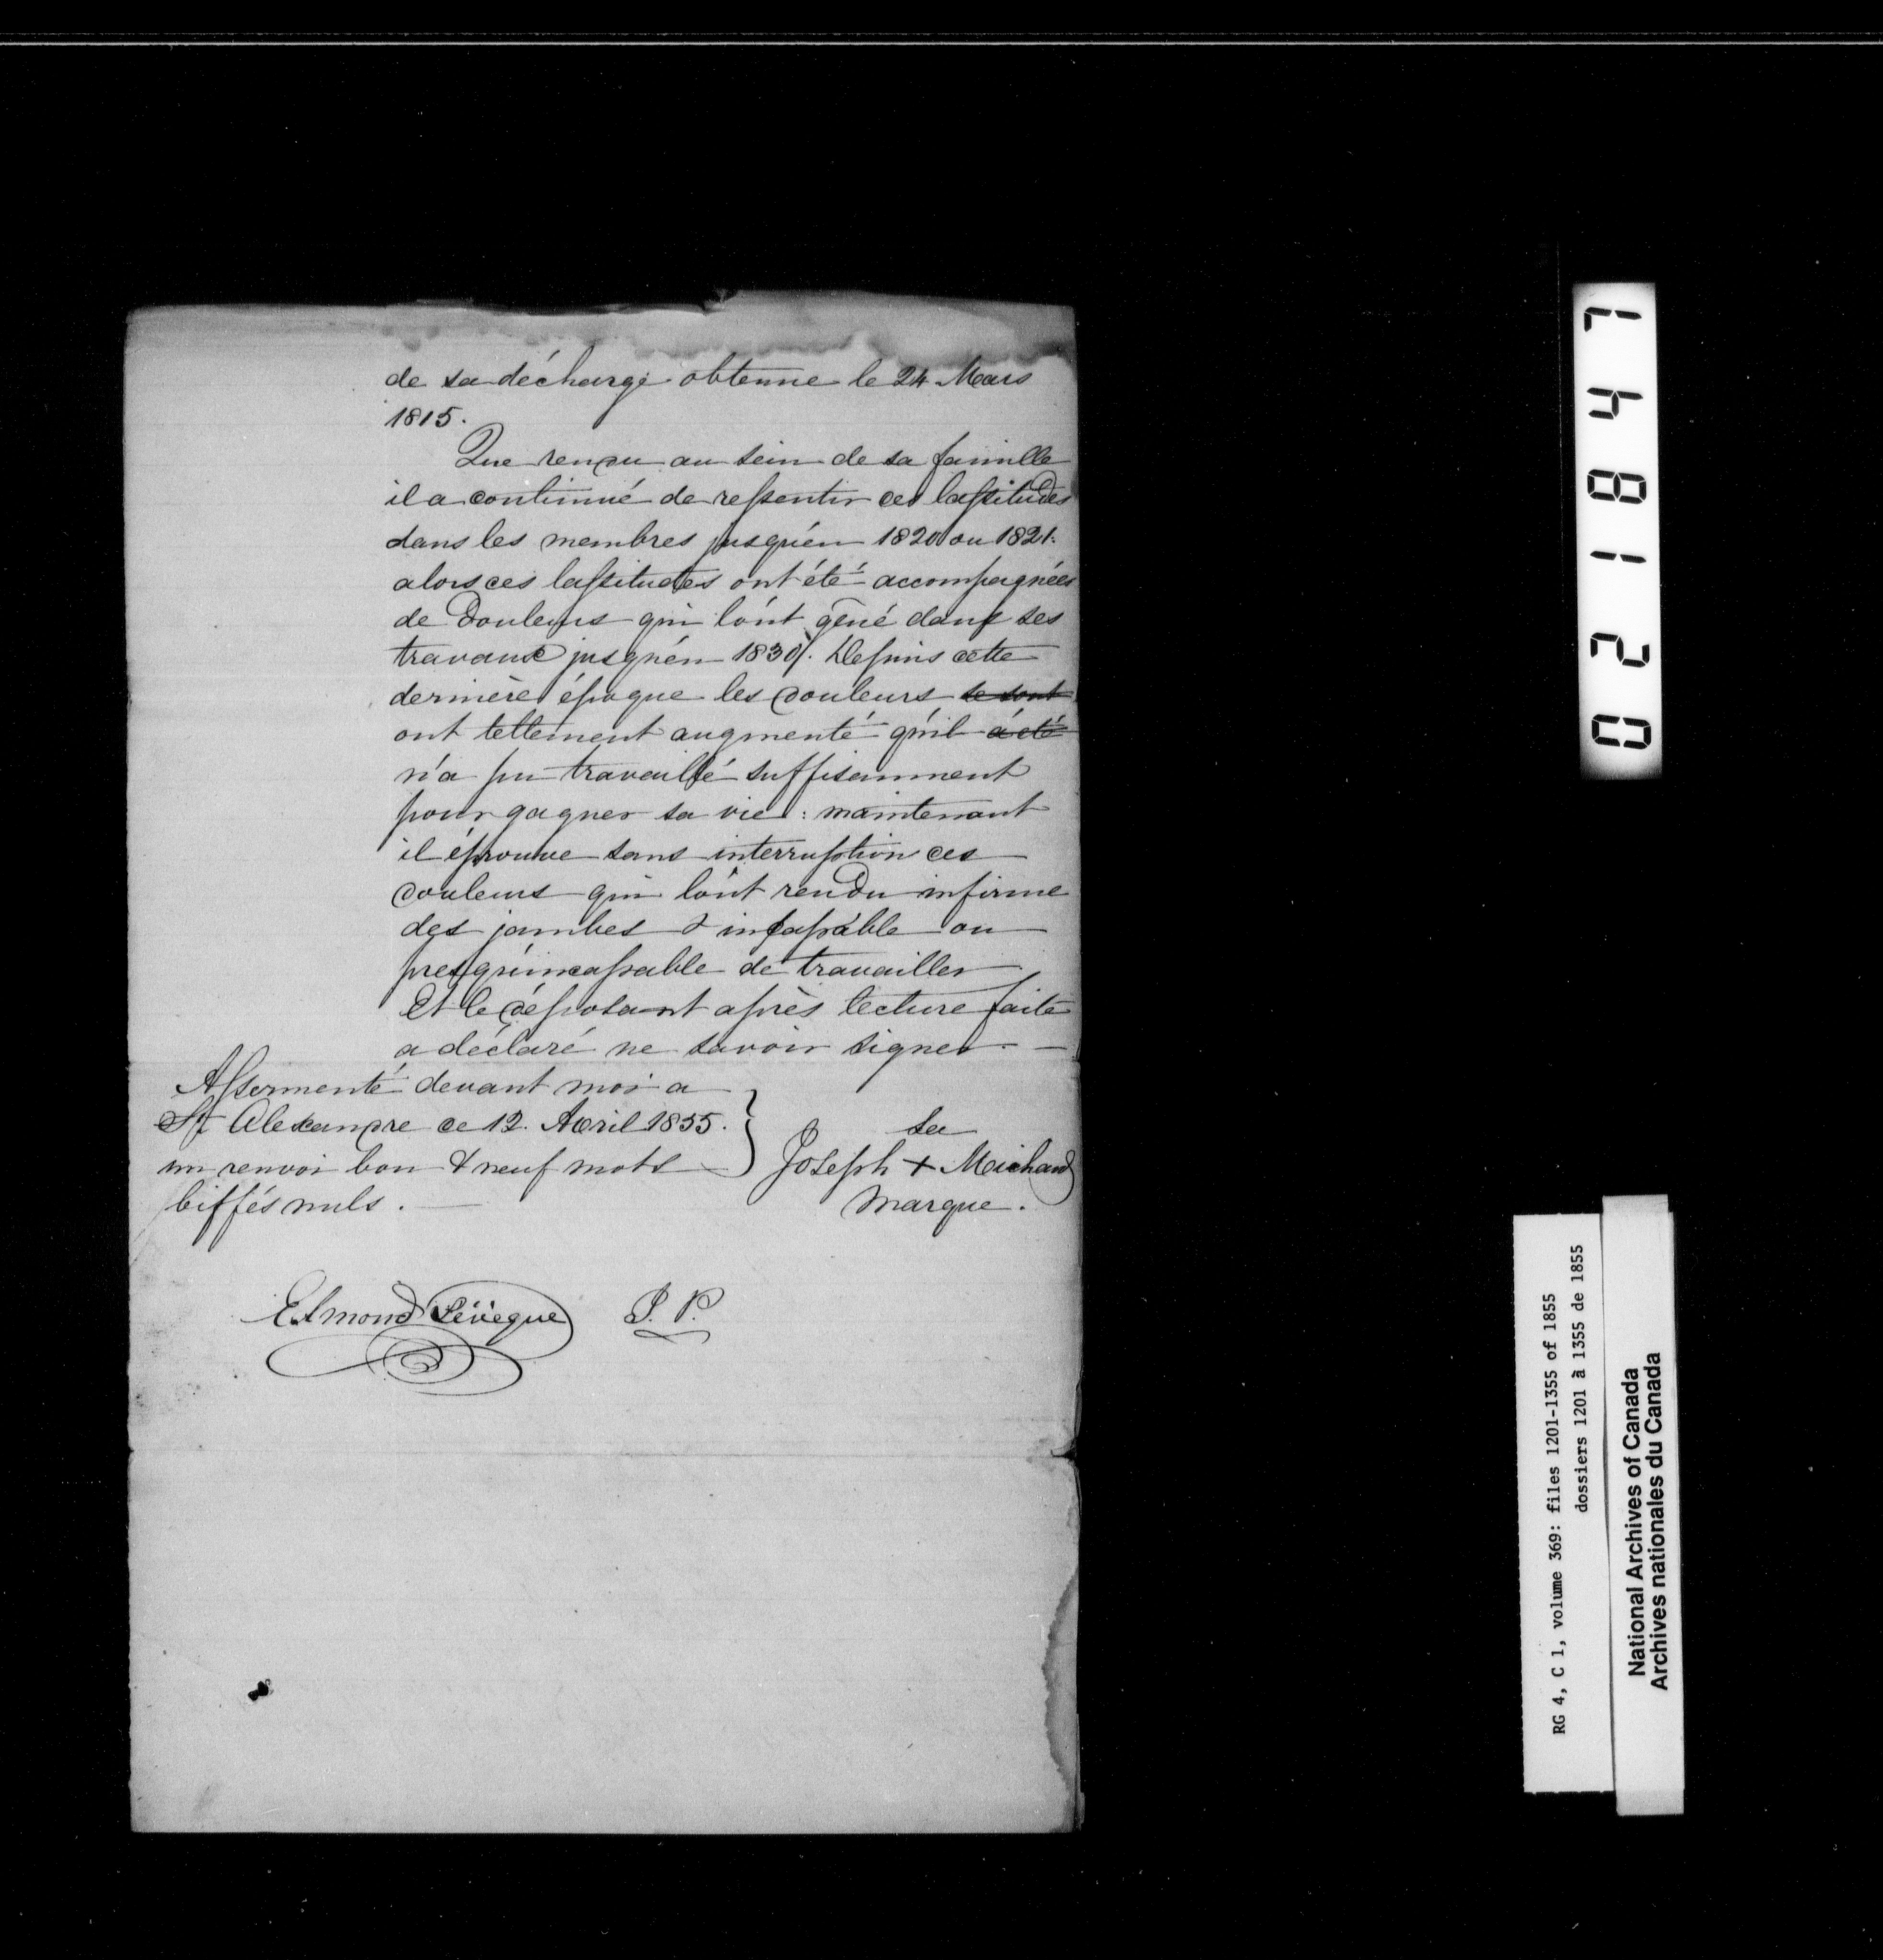 de sa décharge obtenue le 24 Mars
1815.
Que rendu au sein de sa famille
il a continué de ressentir ces lassitudes
dans les membres jusqu'én 1820 ou 1821.
alors ces lassitudes ont été accompagnées
de Douleurs qui l'ont gêné dans ses
travaux jusqu'én 1830. Depuis cette
dernière époque les douleurs se sont
ont tellement augmenté qu'il a été
n'a pu travaillé suffisamment
pour gagner sa vie : maintenant
il éprouve sans interruption ces
douleurs qui l'ont rendu infirme
des jambes & incapable ou
presqu'incapable de travailler
Et le déposant après lecture faite
a déclaré ne savoir signer. —
Assermenté devant moi a
St Alexandre ce 12. Avril 1855.
un renvoi bon & neuf mots
biffés nuls. —
sa
Joseph + Michaud
marque.
Edmond Lévèque J. P.
021847
RG 4, C 1, volume 369: files 1201-1355 of 1855
dossiers 1201 à 1355 de 1855
National Archives of Canada
Archives nationales du Canada